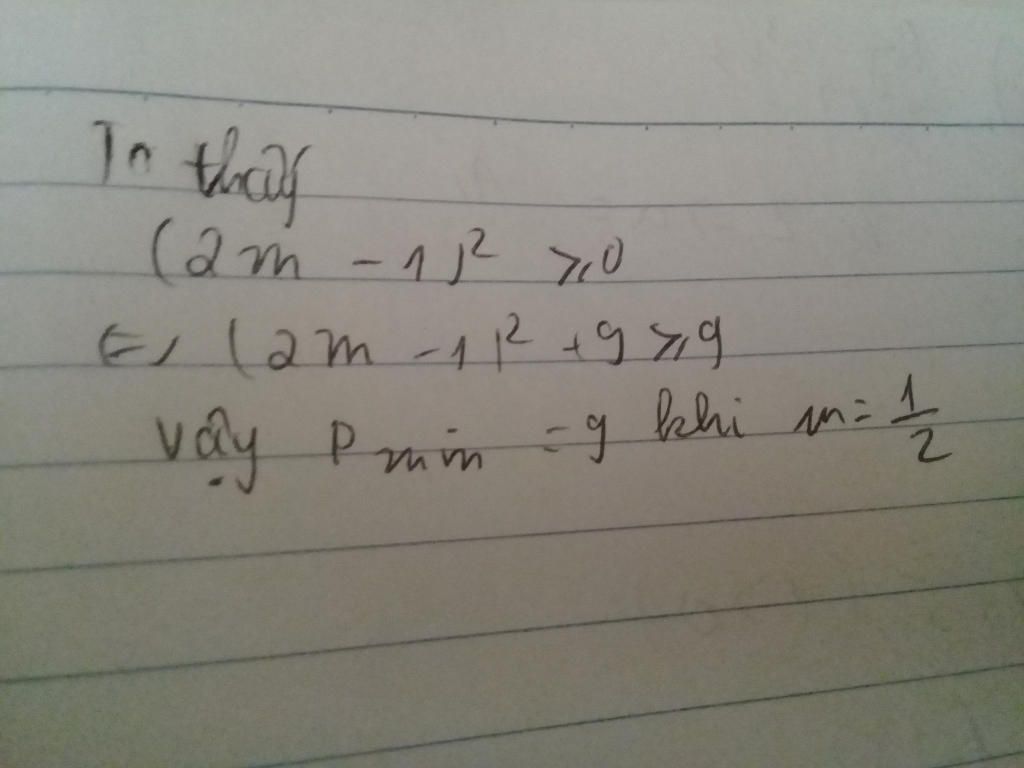 Ta thấy
(2m - 1)² ≥ 0
⇔ (2m - 1)² + 9 ≥ 9
Vậy P min = 9 khi m = 1/2